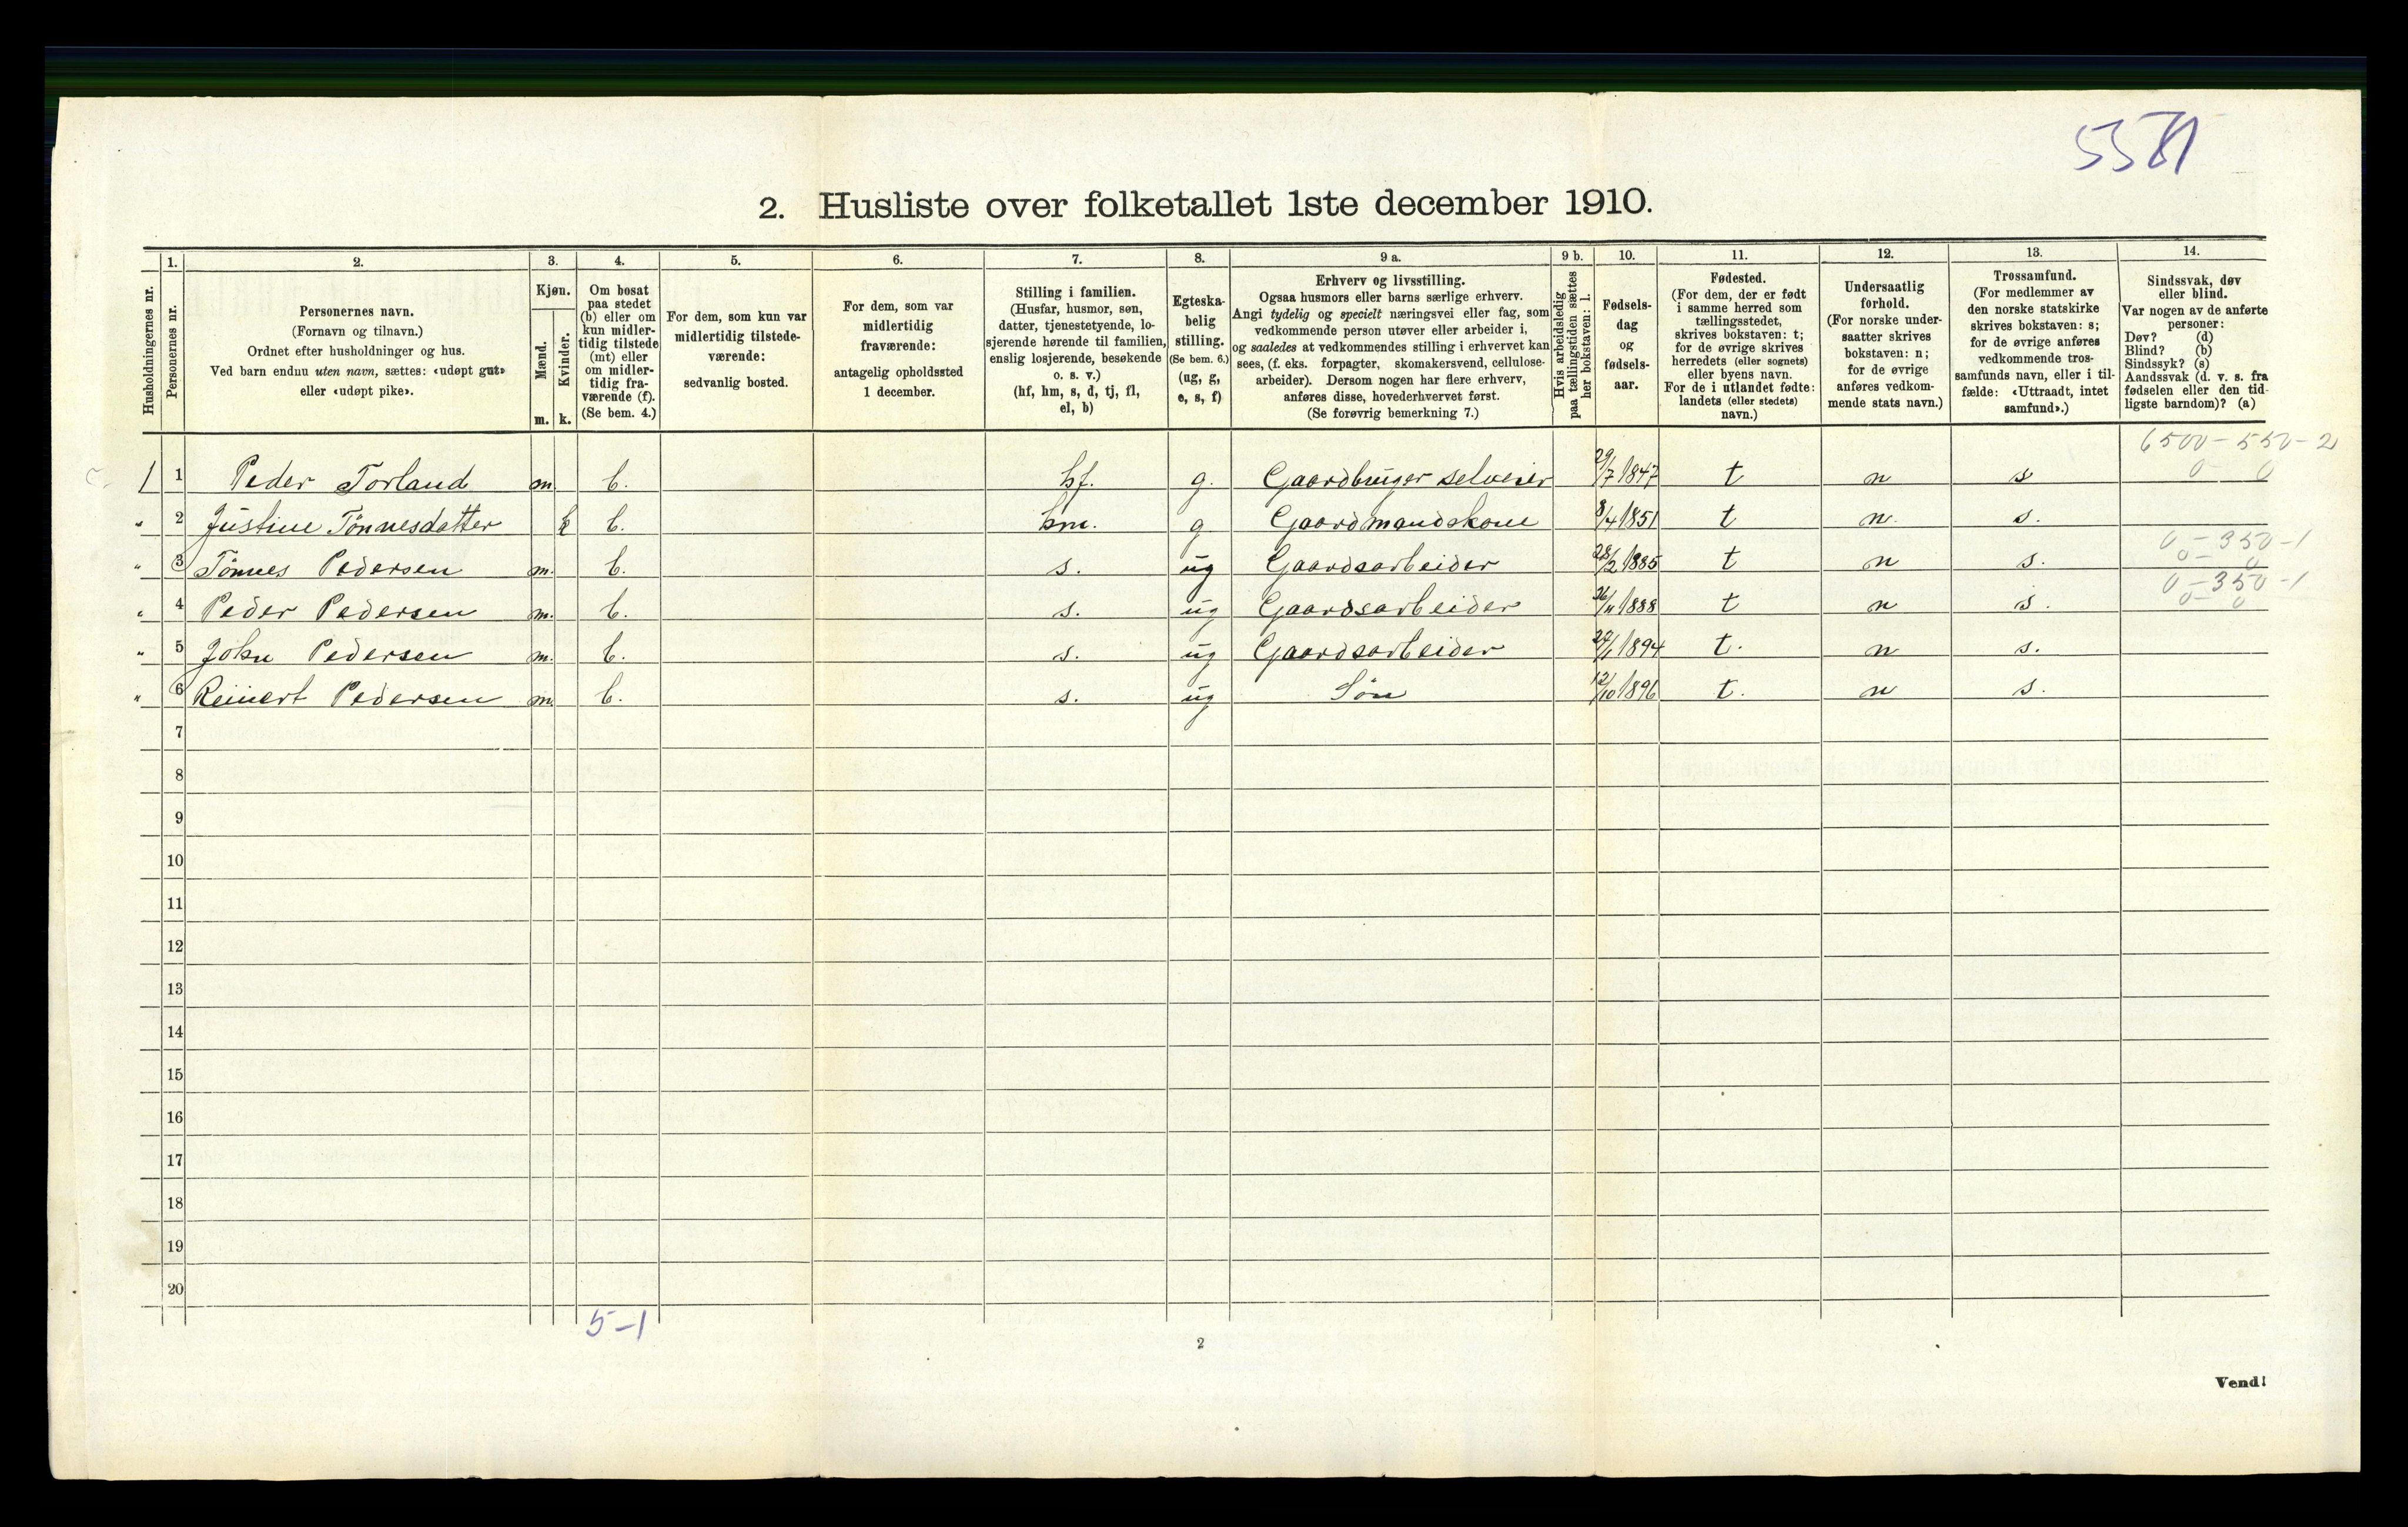 5581
2. Husliste over folketallet 1ste december 1910.
Husholdningernes nr.
1.
Personernes nr.
2.
Personernes navn.
(Fornavn og tilnavn.)
Ordnet efter husholdninger og hus.
Ved barn endnu uten navn, sættes: «udøpt gut»
eller «udøpt pike».
3.
Kjøn.
Mænd.
Kvinder.
m. k.
4.
Om bosat
paa stedet
(b) eller om
kun midler-
tidig tilstede
(mt) eller
om midler-
tidig fra-
værende (f).
(Se bem. 4.)
5.
For dem, som kun var
midlertidig tilstede-
værende:
sedvanlig bosted.
6.
For dem, som var
midlertidig
fraværende:
antagelig opholdssted
1 december.
7.
Stilling i familien.
(Husfar, husmor, søn,
datter, tjenestetyende, lo-
sjerende hørende til familien,
enslig losjerende, besøkende
o. s. v.)
(hf, hm, s, d, tj, fl,
el, b)
8.
Egteska-
belig
stilling.
(Se bem. 6.)
(ug, g,
e, s, f)
9 a.
Erhverv og livsstilling.
Ogsaa husmors eller barns særlige erhverv.
Angi tydelig og specielt næringsvei eller fag, som
vedkommende person utøver eller arbeider i,
og saaledes at vedkommendes stilling i erhvervet kan
sees, (f. eks. forpagter, skomakersvend, cellulose-
arbeider). Dersom nogen har flere erhverv,
anføres disse, hovederhvervet først.
(Se forøvrig bemerkning 7.)
9 b.
Hvis arbeidsledig
paa tællingstiden sættes
her bokstaven: l.
10.
Fødsels-
dag
og
fødsels-
aar.
11.
Fødested.
(For dem, der er født
i samme herred som
tællingsstedet,
skrives bokstaven: t;
for de øvrige skrives
herredets (eller sognets)
eller byens navn.
For de i utlandet fødte:
landets (eller stedets)
navn.)
12.
Undersaatlig
forhold.
(For norske under-
saatter skrives
bokstaven: n;
for de øvrige
anføres vedkom-
mende stats navn.)
13.
Trossamfund.
(For medlemmer av
den norske statskirke
skrives bokstaven: s;
for de øvrige anføres
vedkommende tros-
samfunds navn, eller i til-
fælde: «Uttraadt, intet
samfund».)
14.
Sindssvak, døv
eller blind.
Var nogen av de anførte
personer:
Døv? (d)
Blind? (b)
Sindssyk? (s)
Aandssvak (d. v. s. fra
fødselen eller den tid-
ligste barndom)? (a)
6500-550-2
0 - 0
1 1 Peder Torland m. b. hf. g. Gaardbruger selveier 29/7 1847 t n s
" 2 Justine Tønnesdatter k b. hm. g Gaardmandskone 8/4 1851 t n. s.
0-350-1
0 0
" 3 Tønnes Pedersen m. b. s. ug Gaardsarbeider 28/2 1885 t n s.
0-350-1
0 - 0
" 4 Peder Pedersen m. b. s. ug Gaardsarbeider 26/11 1888 t n s.
" 5 John Pedersen m. b. s. ug Gaardsarbeider 1894 t. n s.
" 6 Reinert Pedersen m. b. s. ug Søn 12/10 1896 t. n s.
7
8
9
10
11
12
13
14
15
16
17
18
19
20
5-1
2
Vend!